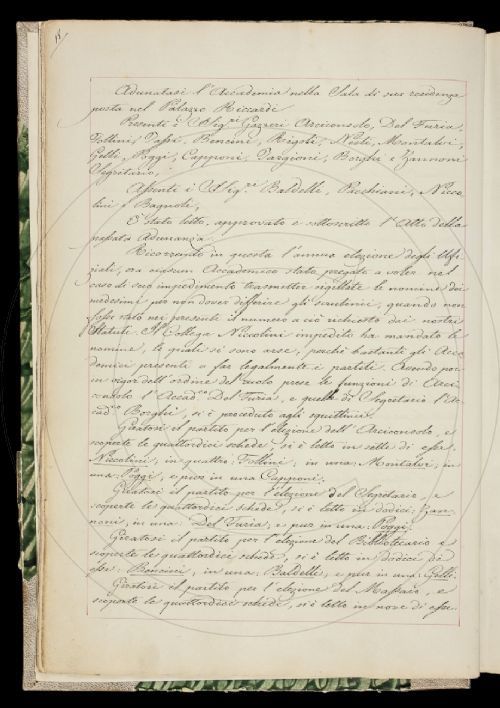 Adunatasi l'Accademia nella Sala di sua residenza
posta nel Palazzo Riccardi
Presenti i SS.ri Gazzeri Arciconsolo, Del Furia,
Follini, Tassi, Bencini, Rigoli, Nesti, Montalvi,
Gelli, Poggi, Capponi, Targioni, Borghi e Zannoni
Segretario,
Assenti i SS.ri Baldelli, Pacchiani, Nicco-
lini e Bagnoli,
E' stato letto, approvato e sottoscritto l'Atto della
passata Adunanza.
Ricorrendo in questa l'annua elezione degli Ufi-
ziali, era ciascun Accademico stato pregato a voler nel
caso di suo impedimento trasmetter sigillate le nomine dei
medesimi per non dover differire gli scrutinii, quando non
fosse stato nei presenti il numero a ciò richiesto dai nostri
Statuti. Il Collega Niccolini impedito ha mandato le
nomine, le quali si sono arse, perchè bastanti gli Acca-
demici presenti a far legalmente i partiti. Avendo poi
in vigor dell'ordine del ruolo prese le funzioni di Arci-
consolo l'Accad.co Del Furia, e quelle di Segretario l'Ac-
cad.co Borghi, si è proceduto agli squittinii.
Giratosi il partito per l'elezione dell'Arciconsolo, e
scoperte le quattordici schede, si è letto in sette di esse:
Niccolini; in quattro: Follini; in una: Montalvi; in
una: Poggi; e pur in una Capponi.
Giratosi il partito per l'elezione del Segretario, e
scoperte le quattordici schede, si è letto in dodici: Zan-
noni, in una: Del Furia, e pur in una: Poggi.
Giratosi il partito per l'elezione del Bibliotecario e
scoperte le quattordici schede, si è letto in dodici di
esse: Bencini, in una: Baldelli, e pur in una: Gelli.
Giratosi il partito per l'elezione del Massaio, e
scoperte le quattordici schede, si è letto in nove di esse: